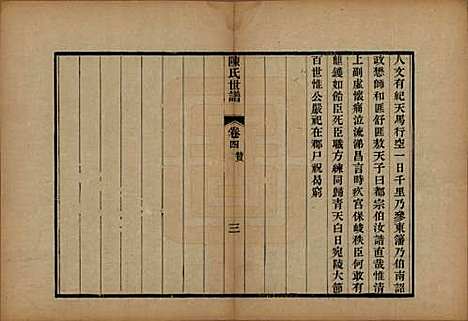 人文有紀天馬行空一日千里乃參東藩乃伯南詔
政恐師和匪舒匪敖天子曰都宗伯汝諧直哉惟清
上副虛懷痛泣流涕昌言時疚宮保峻秩臣何敢有
鼎鑊如飴臣死臣職方練同歸青天白日宛陵大節
百世惟公嚴祀在鄰尸祝曷窮
陳氏世譜
卷四
贊
三